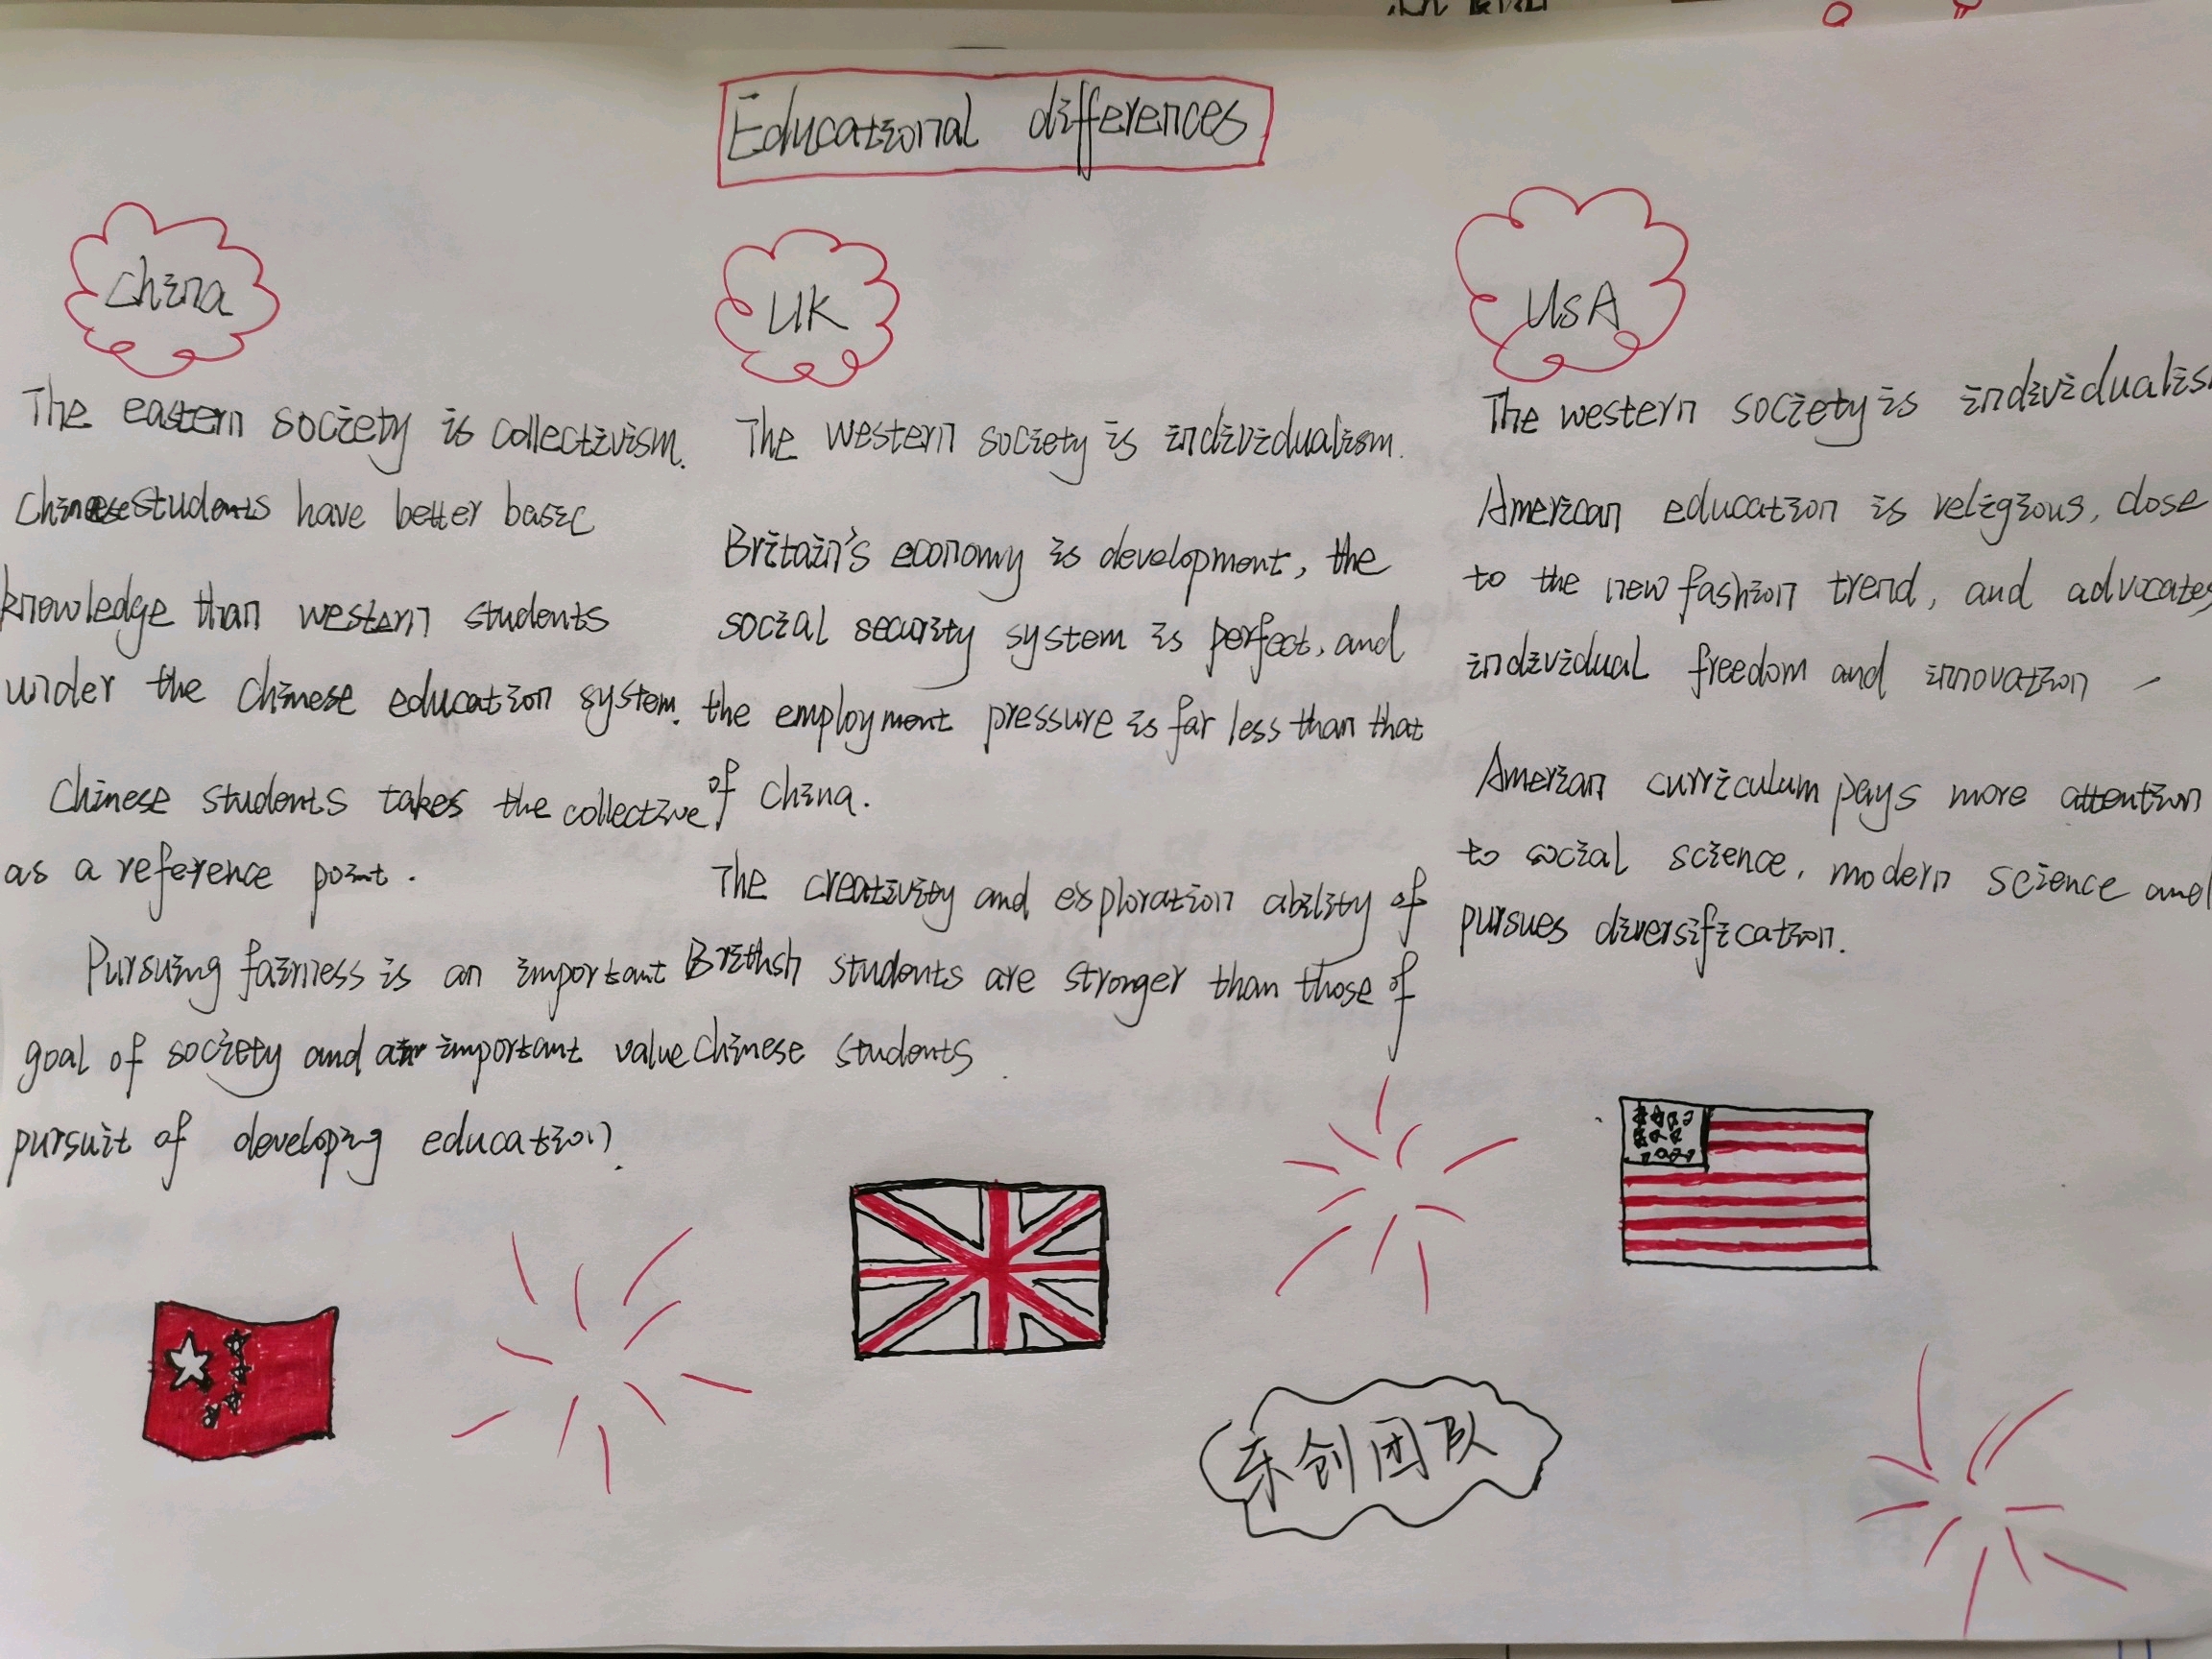 Educational differences
China
The eastern society is collectivism.
Chinese students have better basic
knowledge than western students
under the Chinese education system.
Chinese students takes the collective
as a reference point.
Pursuing fairness is an important
goal of society and an important value
pursuit of developing education.
UK
The western society is individualism.
Britain's economy is development, the
social security system is perfect, and
the employment pressure is far less than that
of China.
The creativity and exploration ability of
Brithsh students are stronger than those of
Chinese students
USA
The western society is individualis
American education is religious, close
to the new fashion trend, and advocates
individual freedom and innovation
Amerian curriculum pays more attention
to social science, modern science and
pursues diversification.
东创团队